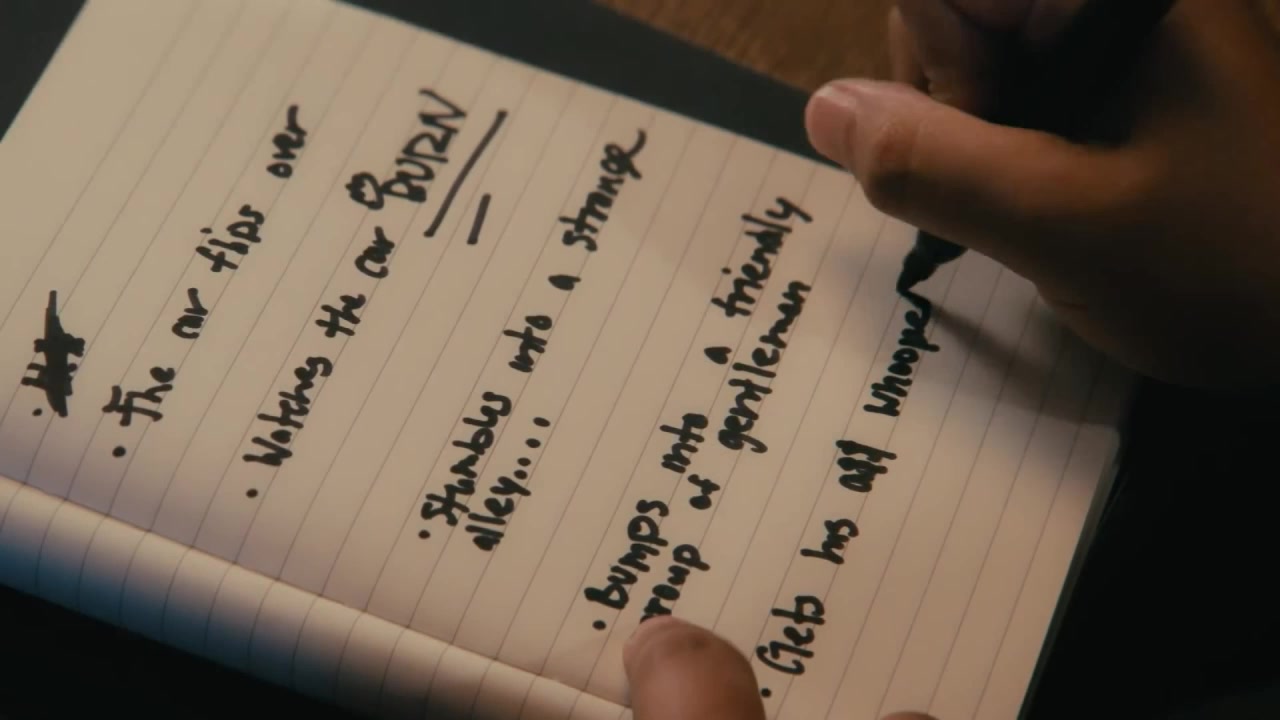 • The car flips over
• Watches the car BURN
• Stumbles into a strange
alley....
• Bumps into a friendly
group of gentleman
• Gets his a** whooped